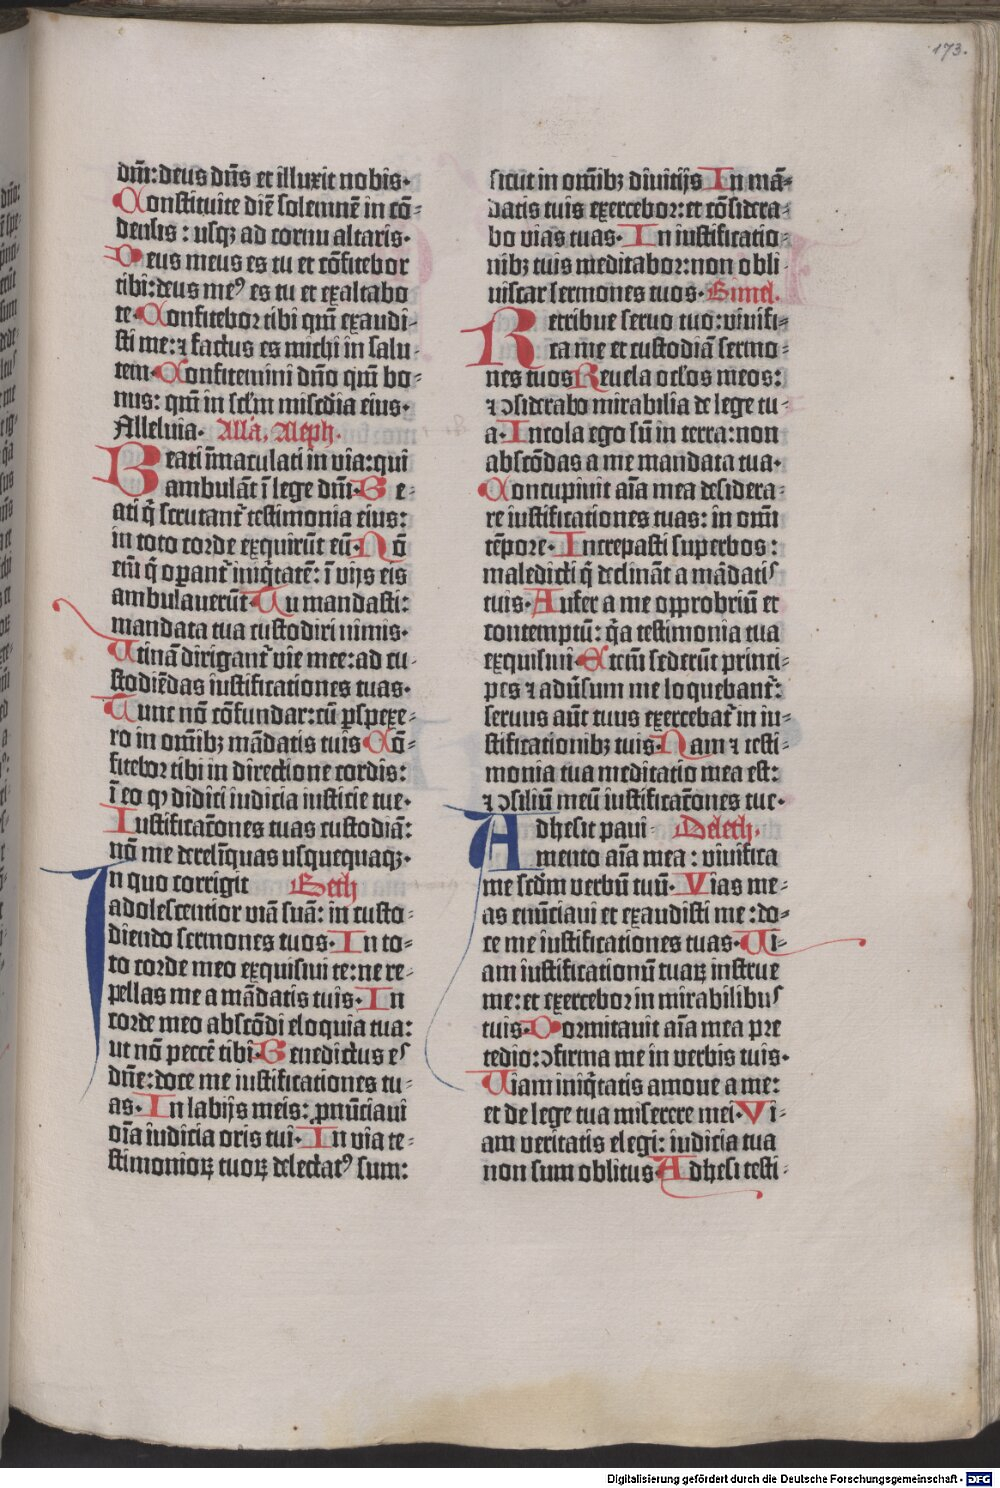 173.
dm̄: deus dn̄s et illuxit nobis·
Constituite diē solemnē in cō-
densis: usqꝫ ad cornu altaris·
Deus meus es tu et cōfitebor
tibi: deus meꝰ es tu et exaltabo
te· Confitebor tibi qm̄ exaudi-
sti me: ⁊ factus es michi in salu-
tem· Confitemini dn̄o qm̄ bo-
nus: qm̄ in sclm̄ misc̄dia eius·
Alleluia· All'a. Aleph.
Beati īmaculati in via: qui
ambulāt ī lege dm̄i· Be-
ati q̄ scrutant᷑ testimonia eius:
in toto corde exquirūt eū· Nō
em̄ q̄ oꝑant᷑ iniq̄tatē: ī vijs eis
ambulauerūt· Tu mandasti:
mandata tua custodiri nimis·
Utinā dirigant᷑ vie mee: ad cu-
stodiēdas iustificationes tuas·
Tunc nō cōfundar: cū ꝑspexe-
ro in om̄ibꝫ mādatis tuis Cō-
fitebor tibi in directione cordis:
ī eo qꝙ didici iudicia iusticie tue·
Iustificac̄ones tuas custodiā:
nō me derelīquas usquequaqꝫ·
In quo corrigit Beth
adolescentior viā suā: in custo-
diendo sermones tuos· In to-
to corde meo exquisiui te: ne re-
pellas me a mādatis tuis· In
corde meo abscōdi eloquia tua:
ut nō peccē tibi· Benedictus es
dn̄e: doce me iustificationes tu-
as· In labijs meis: ꝓnūciaui
oīa iudicia oris tui· In via te-
stimonioꝝ tuoꝝ delectatꝰ sum:
sicut in om̄ibꝫ diuitijs In mā-
datis tuis exercebor: et cōsidera-
bo vias tuas· In iustificatio-
nibꝫ tuis meditabor: non obli-
uiscar sermones tuos· Gimel.
Retribue seruo tuo: viuifi-
ca me et custodiā sermo-
nes tuos Reuela oclos meos:
⁊ ↄsiderabo mirabilia de lege tu-
a· Incola ego sū in terra: non
abscōdas a me mandata tua·
Concupiuit aīa mea desidera-
re iustificationes tuas: in om̄i
tēpore· Increpasti superbos:
maledicti q̄ declināt a mādatis
tuis· Aufer a me opprobriū et
contemptū: q̄a testimonia tua
exquisiui· Etem̄ sederūt princi-
pes ⁊ adūsum me loquebant᷑:
seruus aūt tuus exercebat᷑ in iu-
stificationibꝫ tuis· Nam ⁊ testi-
monia tua meditatio mea est:
⁊ ↄsiliū meū iustificac̄ones tue·
Adhesit paui Deleth.
mento aīa mea: viuifica
me scdm̄ verbū tuū· Vias me-
as enūciaui et exaudisti me: do-
ce me iustificationes tuas· Vi-
am iustificationū tuaꝝ instrue
me: et exercebor in mirabilibus
tuis· Dormitauit aīa mea pre
tedio: ↄfirma me in verbis tuis·
Viam iniq̄tatis amoue a me:
et de lege tua miserere mei· Vi-
am veritatis elegi: iudicia tua
non sum oblitus· Adhesi testi-
Digitalisierung gefördert durch die Deutsche Forschungsgemeinschaft - DFG